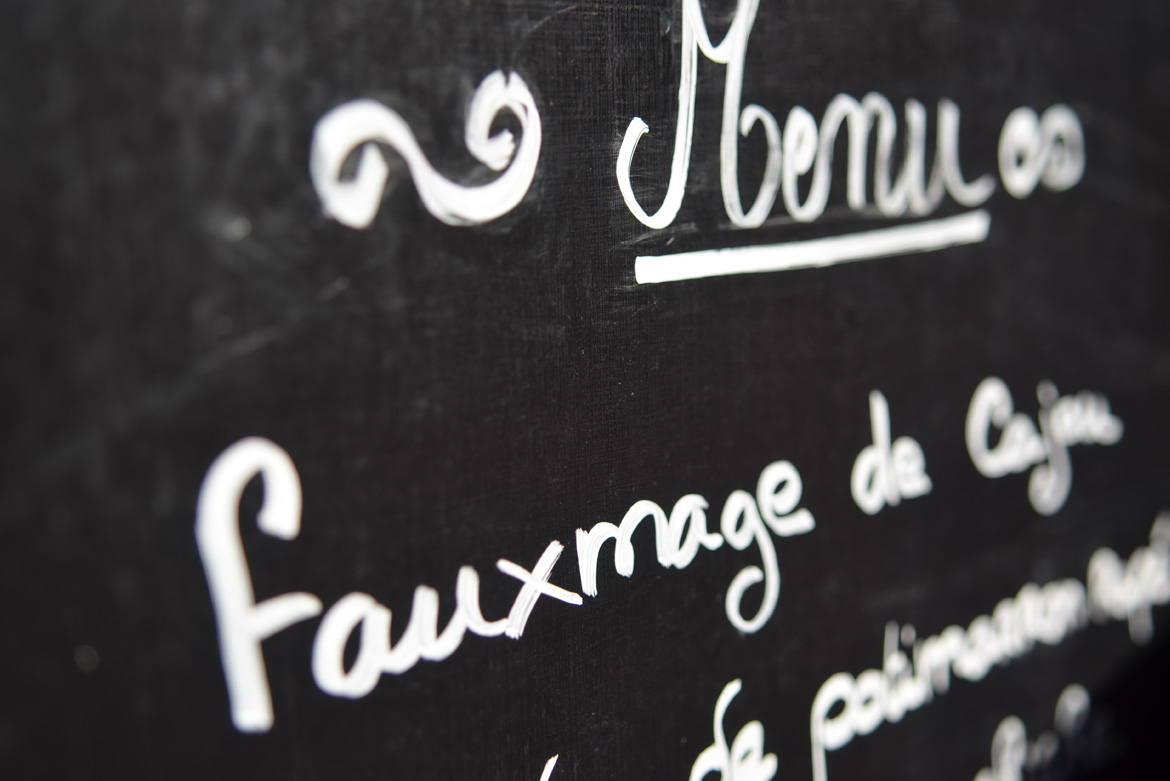 Menu
Fauxmage de Cajou
de potimarron